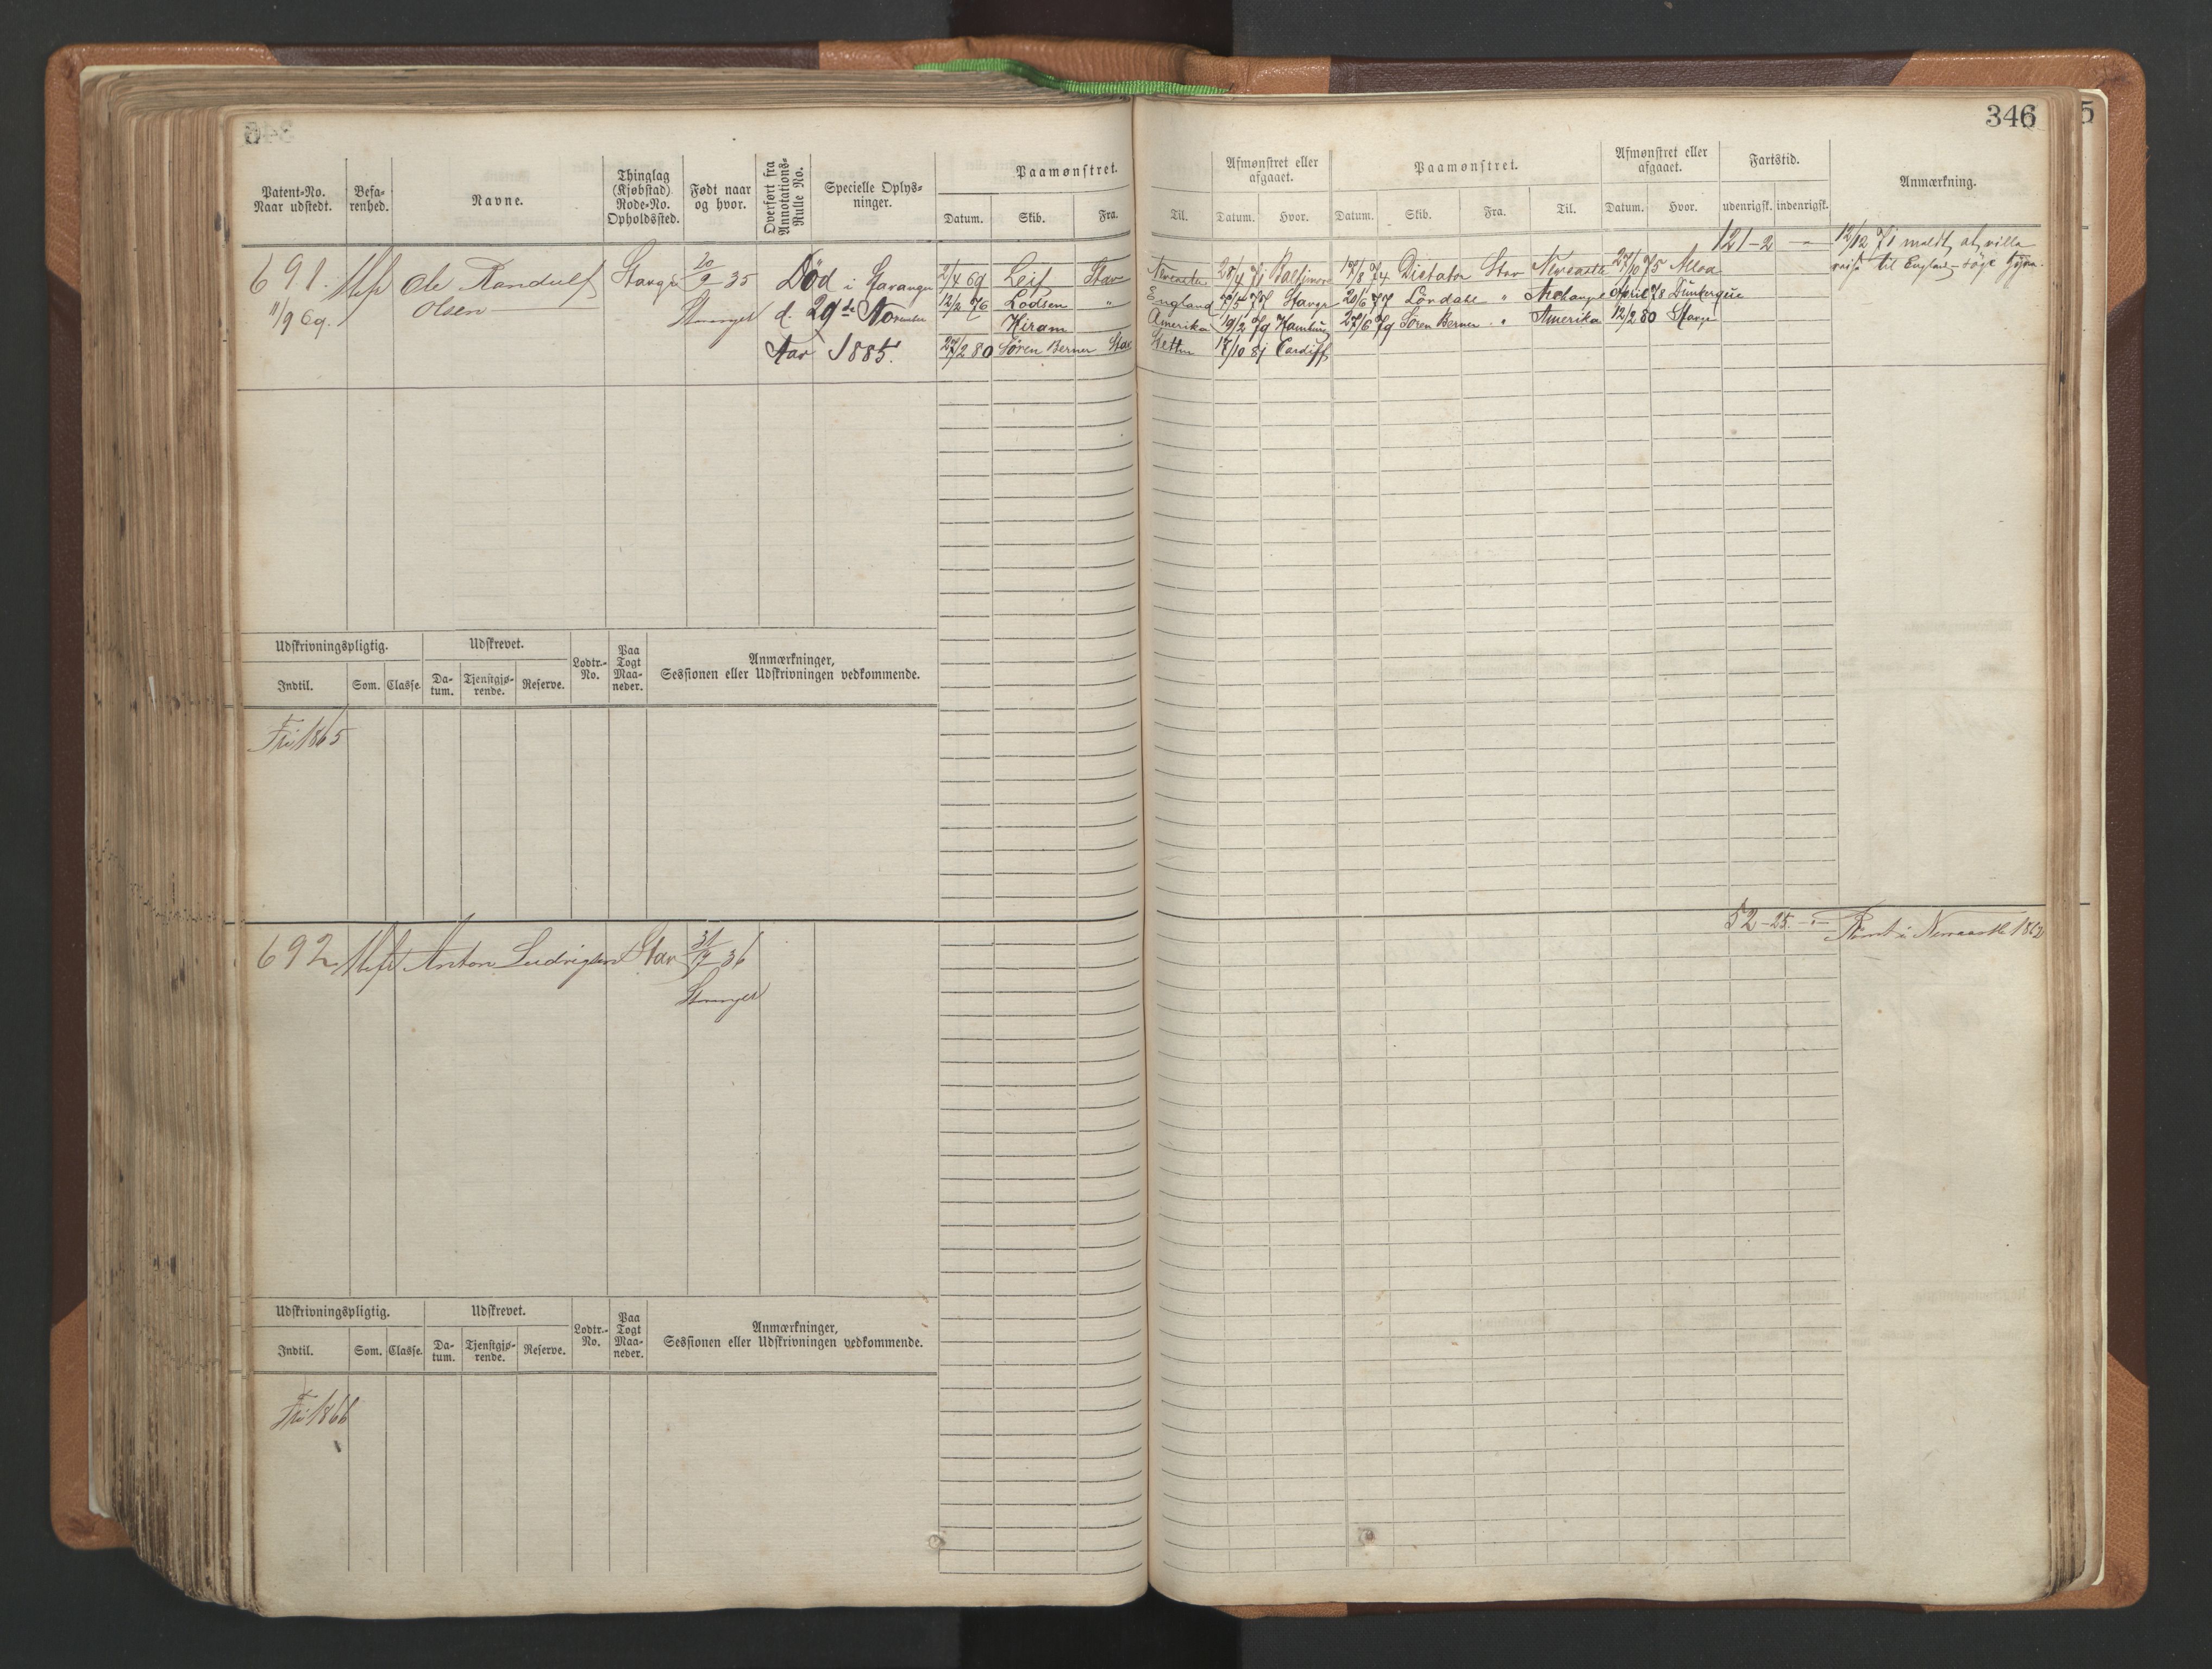 346
5
Patent-No. Naar udstedt.
Befa-renhed.
Navne.
Thinglag (Kjøbstad) Rode-No. Opholdssted.
Født naar og hvor.
Overført fra Annotations-Rulle No.
Specielle Oplys-ninger.
Paamønstret.
Datum. Skib. Fra. Til.
Afmønstret eller afgaaet.
Datum. Hvor.
Paamønstret.
Datum. Skib. Fra. Til.
Afmønstret eller afgaaet.
Datum. Hvor.
Fartstid.
udenrigsk. indenrigsk.
Anmærkning.
121-2 - 12/12 71 meldt, at ville
reise til England - søge Hyre.
691. Ole Randulf Stavgr 20/9 35 Død i Stavanger 2/4 69 Leif Stav Newcastle 28/4 71 Baltimore 17/8 74 Dictator Stav Newcastle 27/10 75 Alloa
11/9 69. Olsen Stavanger d. 29de November 12/2 76 Lodsen " England 7/5 77 Stavgr 20/6 77 Lövdahl " Archangel April 78 Dunkerque
Hiram Amerika 19/2 79 Hamburg 27/6 79 Sören Berner " Amerika 12/2 80 Stavgr
Aar 1885. 27/2 80 Sören Berner Stav Stettin 17/10 81 Cardiff
Udskrivningspligtig.
Indtil. Som. Classe.
Udskrevet.
Da-tum. Tjenstgjø-rende. Reserve.
Lodtr.-No.
Paa Togt Maa-neder.
Anmærkninger,
Sessionen eller Udskrivningen vedkommende.
Fri 1865
52-25 - Rømt i Newcastle 1862
692 Anton Ludvigsen Stav 31/7 36
Stavanger
Udskrivningspligtig.
Indtil. Som. Classe.
Udskrevet.
Da-tum. Tjenstgjø-rende. Reserve.
Lodtr.-No.
Paa Togt Maa-neder.
Anmærkninger,
Sessionen eller Udskrivningen vedkommende.
Fri 1866